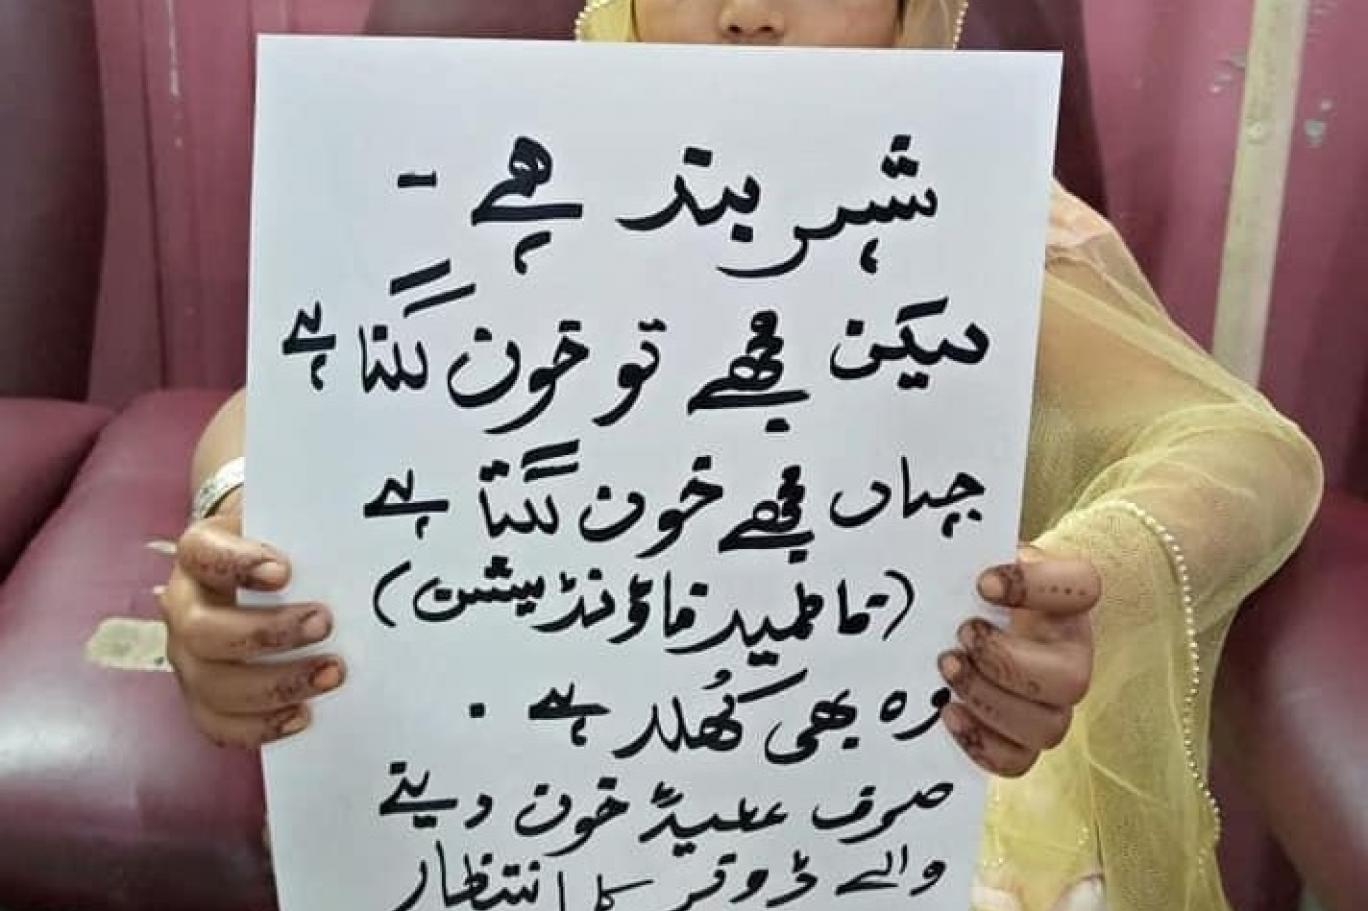 شہر بند ہے -
لیکن مجھے تو خون لگنا ہے
جہاں مجھے خون لگتا ہے
(فاطمید فاؤنڈیشن)
وہ بھی کُھلا ہے .
صرف عطیہ خون دینے
والے ڈونر کا انتظار